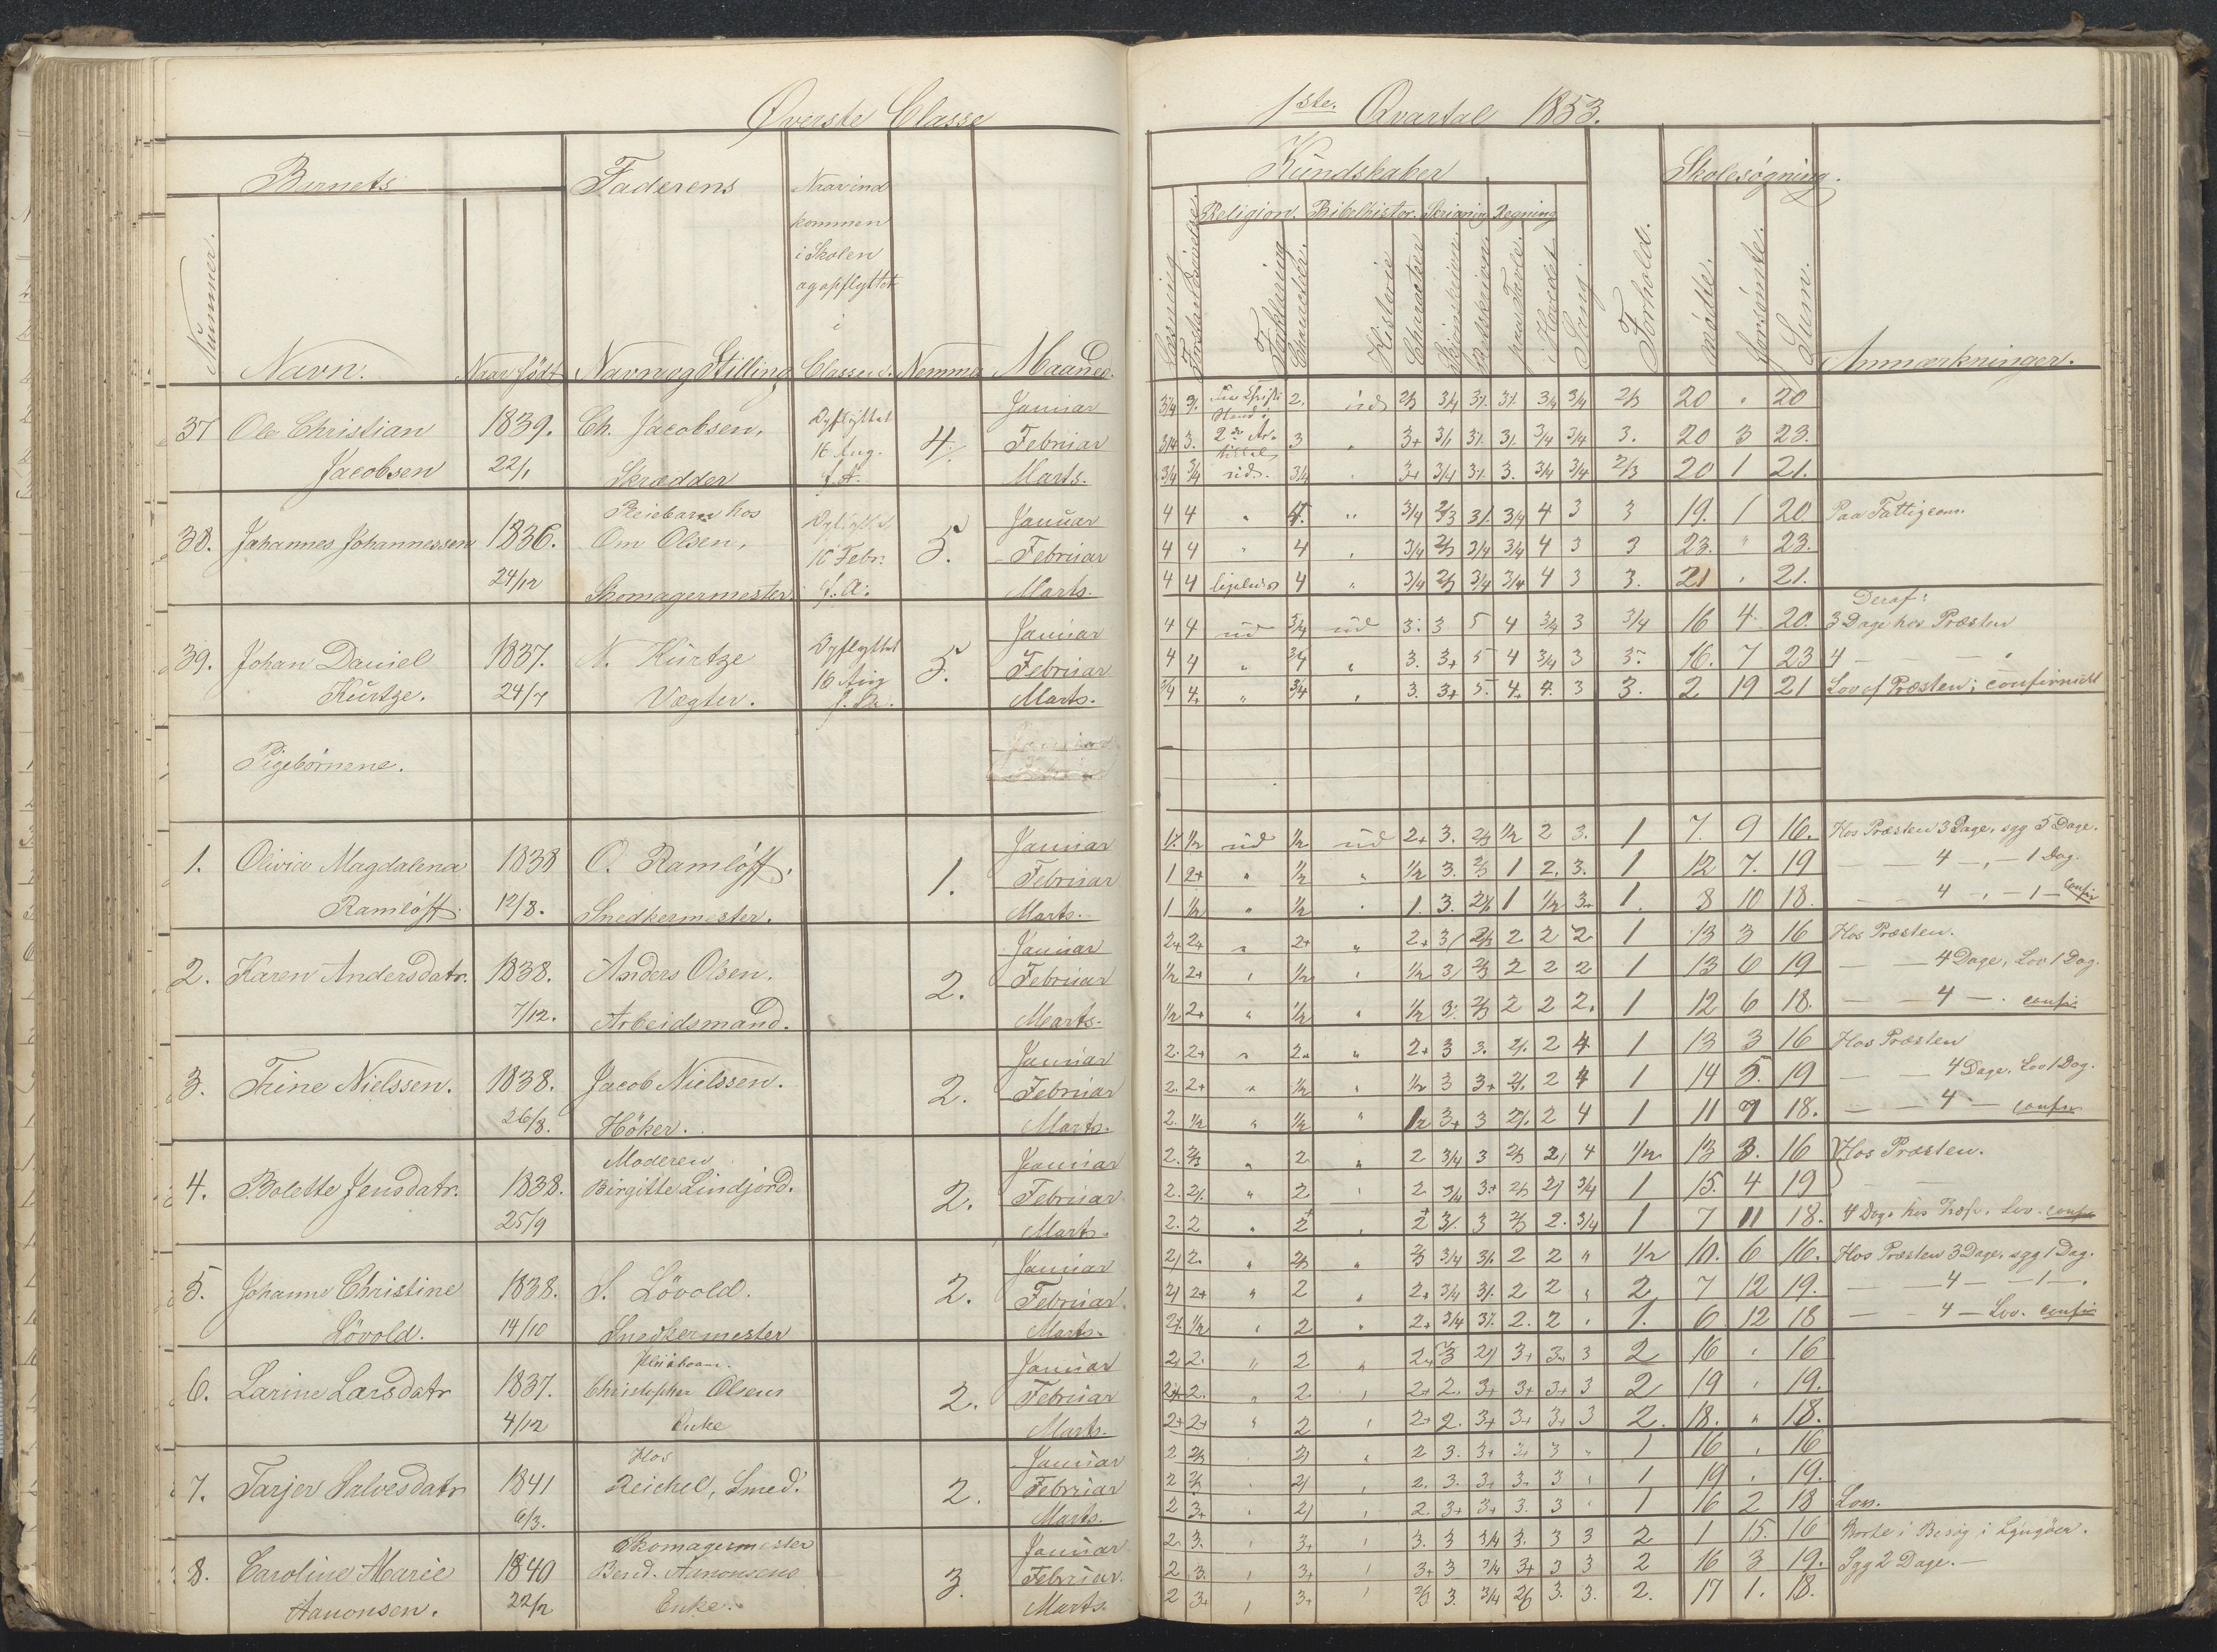 Øverste Classe
1ste Qvartal 1853.
Barnets
Faderens
Naar ind
kommen
i Skolen
og opflyttet
i
Classen.
Nummer.
Navn.
Naar født
Navn og Stilling
Nemme
Maaned.
Kundskaber
Skolesøgning.
Religion. Bibelhistor. Skrivning Regning
Læsning
Forklaring
Character.
Historie
Character
paa Tavle.
i Hovedet
Sang.
Forhold.
mødte.
forsömte.
Sum.
Anmærkninger.
37 Ole Christian 1839. Ch. Jacobsen, Opflyttet 4. Januar 20 " 20
Jacobsen 22/1 Skrædder 16 Aug. Februar 3. 20 3 23.
f. A. Marts. 2/3 20 1 21.
38. Johannes Johannessen 1836. Pleiebarn hos Opflyttet 5. Januar 4 4 3 19. 1 20 Paa Fattigcom.
24/12 Om Olsen, 16 Febr. Februar 4 4 3 23. " 23.
Skomagermester f. A. Marts. 4 4 ligeledes 4 3. 21 " 21.
Deraf:
39. Johan Daniel 1837. N. Kürtze Opflyttet 5. Januar 4 4 ud 3/4 ud 3. 3 5 4 3/4 3 3/4 16 4 20. 3 Dage hos Præsten
Kürtze. 24/7 Vægter. 16 Aug Februar 4 4 " 3/4 " 3. 3+ 5 4 3/4 3 3. 16. 7 23 4 — — "
Marts. 3/4 4. " 3/4 " 3. 3+ 5. 4. 4. 3 3. 2 19 21 Lov af Præsten; confirmert
Pigebörnene.
1. Olivia Magdalena 1838 O. Ramlöff. 1. Januar ud 1/2 ud 2+ 3. 2/3 1/2 2 3. 1 7. 9 16. Hos Præsten 3 Dage, syg 5 Dage.
Ramlöff. 12/8. Snedkermester. Februar 1 2+ " 1/2 " 1/2 3. 2/3 1 2. 3. 1 12 7. 19 — 4 —, — 1 Dag.
Marts. 1 1/2 " 1/2 " 1. 3. 2/3 1 1/2 3. 1. 8 10 18. — 4 —, — 1 — Confir
2. Karen Andersdatr. 1838. Anders Olsen. 2. Januar 2+ 2+ " 2+ " 2+ 3/ 2/3 2 2 2 1 13 3 16 Hos Præsten.
7/12. Arbeidsmand. Februar 1/2 2+ " 1/2 " 1/2 3/ 2/3 2 2 2 1 13 6 19 — — 4 Dage, Lov 1 Dag.
Marts. 1/2 2+ " 1/2 " 1/2 3. 2/3 2 2 2. 1 12 6 18. — — 4 —. confir
3. Trine Nielssen. 1838. Jacob Nielssen. 2. Januar 2. 2+ " 2+ " 2+ 3 3. 2/. 2 4 1 13 3 16 Hos Præsten
26/8. Höker. Februar 2. 2+ " 1/2 " 1/2 3 3+ 2/. 2 4 1 14 5. 19 — — 4 Dage. Lov 1 Dag.
Marts. 2. 1/2 " 1/2 " 1/2 3+ 3 2/. 2 4 1 11 7 18. — — 4 — confir
4. Bolette Jensdatr. 1838. Moderen 2. Januar 2. 2/3 " 2 " 2 3/4 3 2/3 2/ 4 1/2 13 3. 16 Hos Præsten.
25/9 Birgitte Lindjord. Februar 2. 2/. " 2 " 2 3/4 3+ 2/3 2/ 3/4 1 15. 4 19
Marts. 2. 2 " 2+ " 2+ 3/. 3 2/3 2. 3/4 1 7 11 18. 4 Dage hos Præst. Lov. confir
5. Johanne Christine 1838. S. Lövold. 2. Januar 2/ 2. " 2/3 " 2/3 3/4 3/. 2 2 " 1/2 10. 6 16. Hos Præsten 3 Dage, syg 1 Dag.
Lövold. 14/10 Snedkermester Februar. 2/ 2+ " 2 " 2+ 3/4 3/. 2 2 " 2 7 12 19. — — 4 — — 1 —.
Marts. 2/. 1/2 " 2 " 2+ 3/4 3/. 2. 2 " 1. 6. 12 18 — — 4 — Lov. confir
6. Larine Larsdatr 1837. 2. Januar 2/ 2. " 2 " 2/ 3+ 3+ 3 2 16 " 16
4/12 Christopher Olsens Februar 2. " 2 " 2+ 2. 3+ 3+ 3+ 3 2 19 " 19.
Enke Marts. 2+ 2+ " 2 " 2+ 2. 3+ 3+ 3+ 3 2. 18. " 18.
7. Tarjer Salvesdatr 1841 Hos 2. Januar 2 2/3 2/ " 2 3. 3+ 3 " 1 16 " 16
6/3. Reichel, Smed. Februar 2 2/3 2/ " 2. 3. 3+ 3. 3 " 1 19 " 19.
Marts. 2 3+ " 2/ " 2. 3+ 3+ 3. 3 " 1 16 2 18 Lov.
8. Caroline Marie 1840 Skomagermester 3. Januar 2. 3. " 3+ " 3. 3 3/4 3. 3 3 2 1 15. 16 Borte i Besøg i Lyngöer.
Aanonsen. 22/2 Bend. Aanonsens Februar. 2 3. " 3+ " 3+ 3 3/4 3+ 3 3 2 16 3 19. Syg 2 Dage. —
Enke. Marts. 2 3+ " 3+ " 2/3 3. 3/4 2/3 3. 3. 2. 17 1. 18.